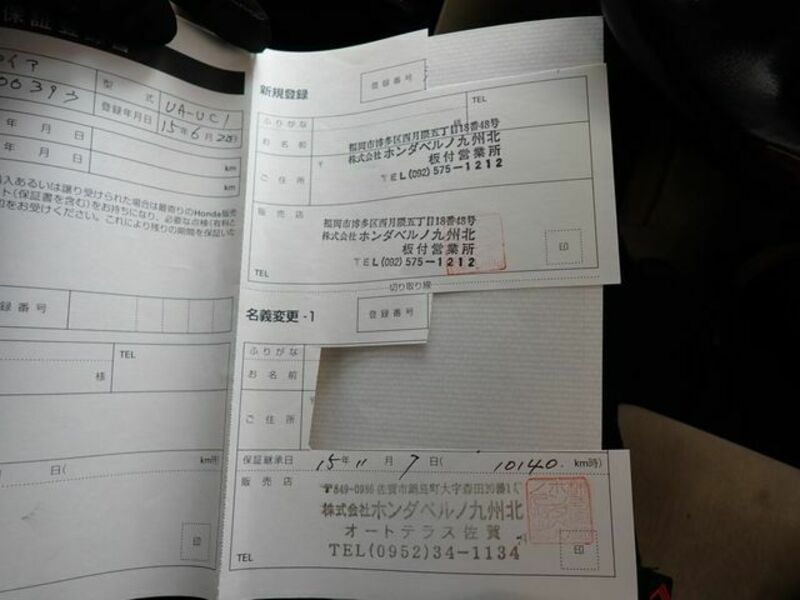 保証登録書
型式 UA-UC1
00393
登録年月日 15年6月
年 月 日
km
年 月 日
km
入あるいは譲り受けられた場合は最寄りのHonda販売
ト(保証書を含む)をお持ちになり、必要な点検(有料と
をお受けください。これにより残りの期間を保証いた
録番号
TEL
様
日(
km時)
印
新規登録
登録番号
ふりがな
TEL
お名前
様
ご住所
〒
福岡市博多区西月隈五丁目18番48号
株式会社 ホンダベルノ九州北
板付営業所
TEL(092)575-1212
販売店
福岡市博多区西月隈五丁目18番48号
株式会社ホンダベルノ九州北
板付営業所
TEL(092)575-1212
印
TEL
切り取り線
名義変更-1
登録番号
ふりがな
お名前
ご住所
〒
保証継承日 15年11月7日( 10140. km時)
販売店
〒849-0936 佐賀市鍋島町大字森田
株式会社ホンダベルノ九州北
オートテラス佐賀
TEL(0952)34-1134
印
TEL